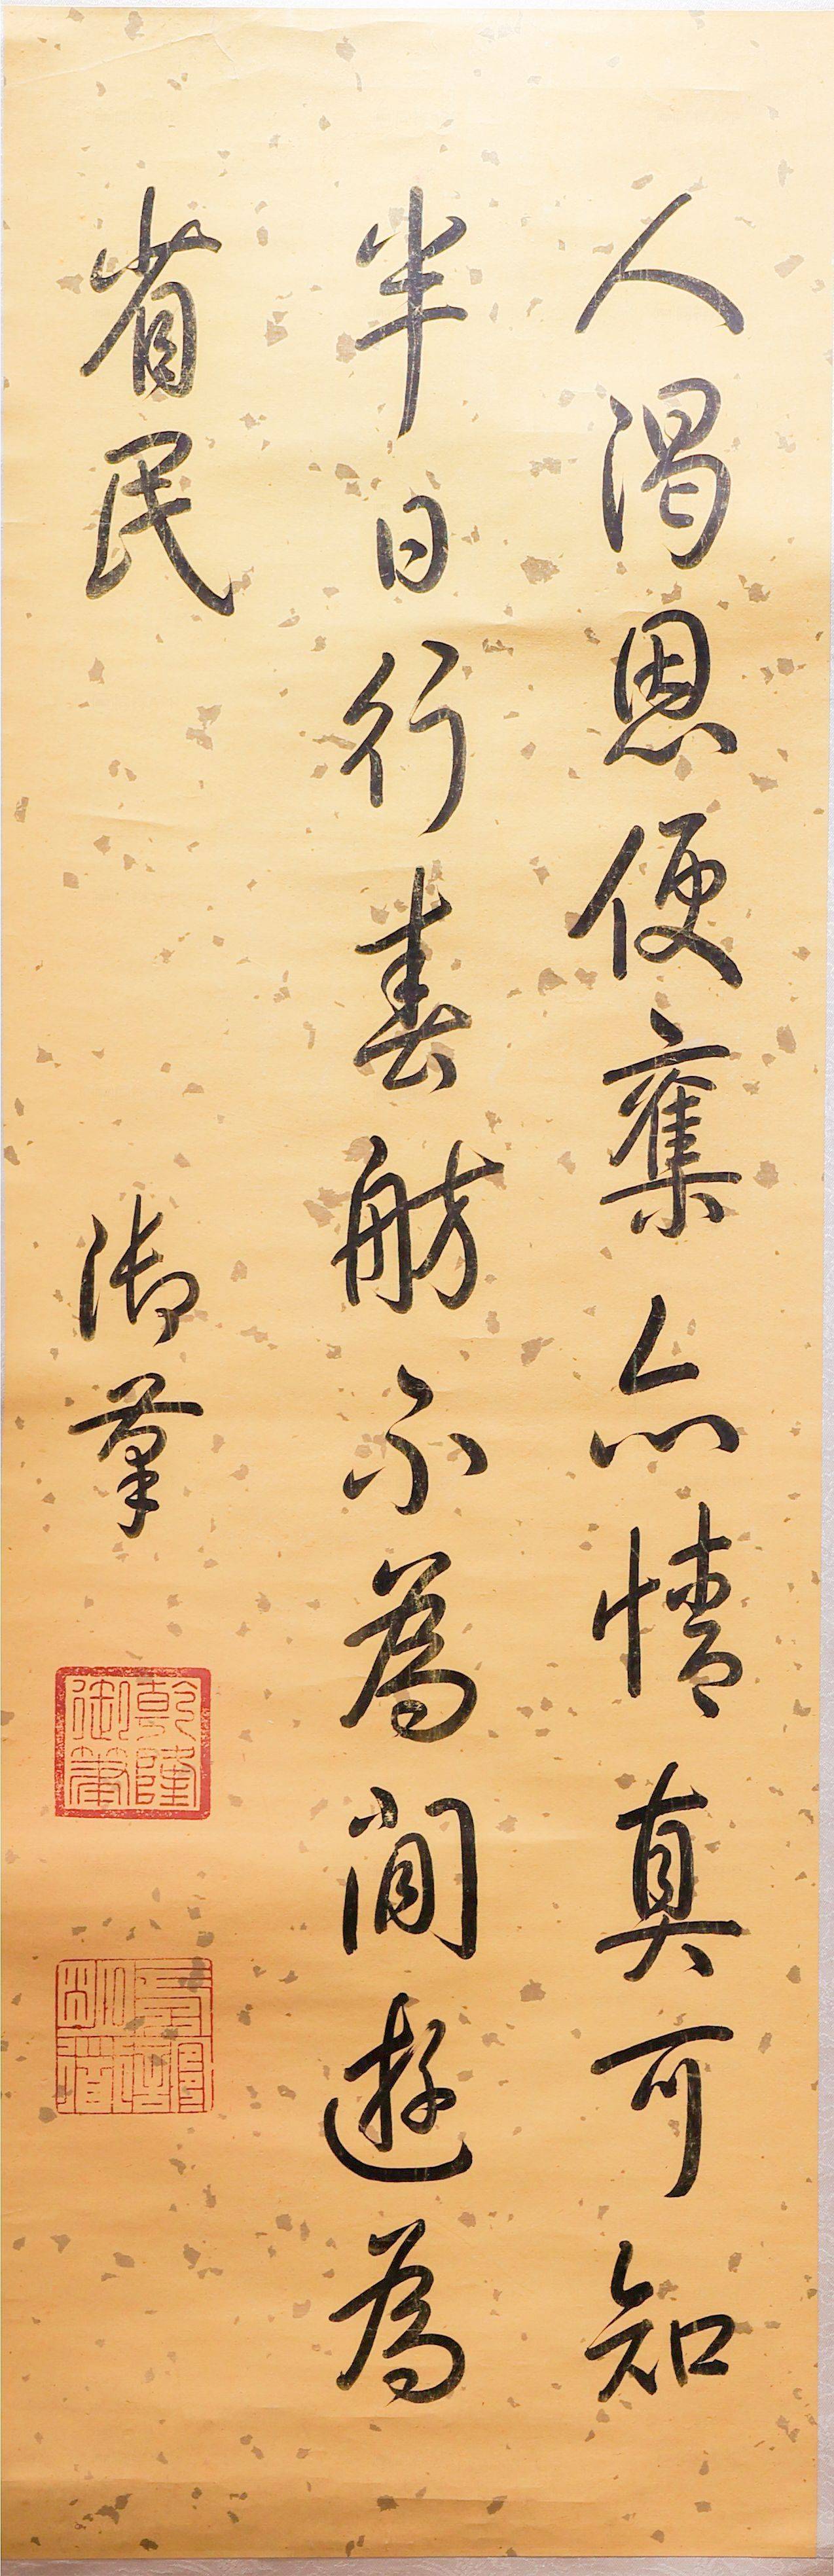 人渴恩便雜亦情真可知
半日行春舫不為閒遊為
省民
御筆
乾隆
御筆